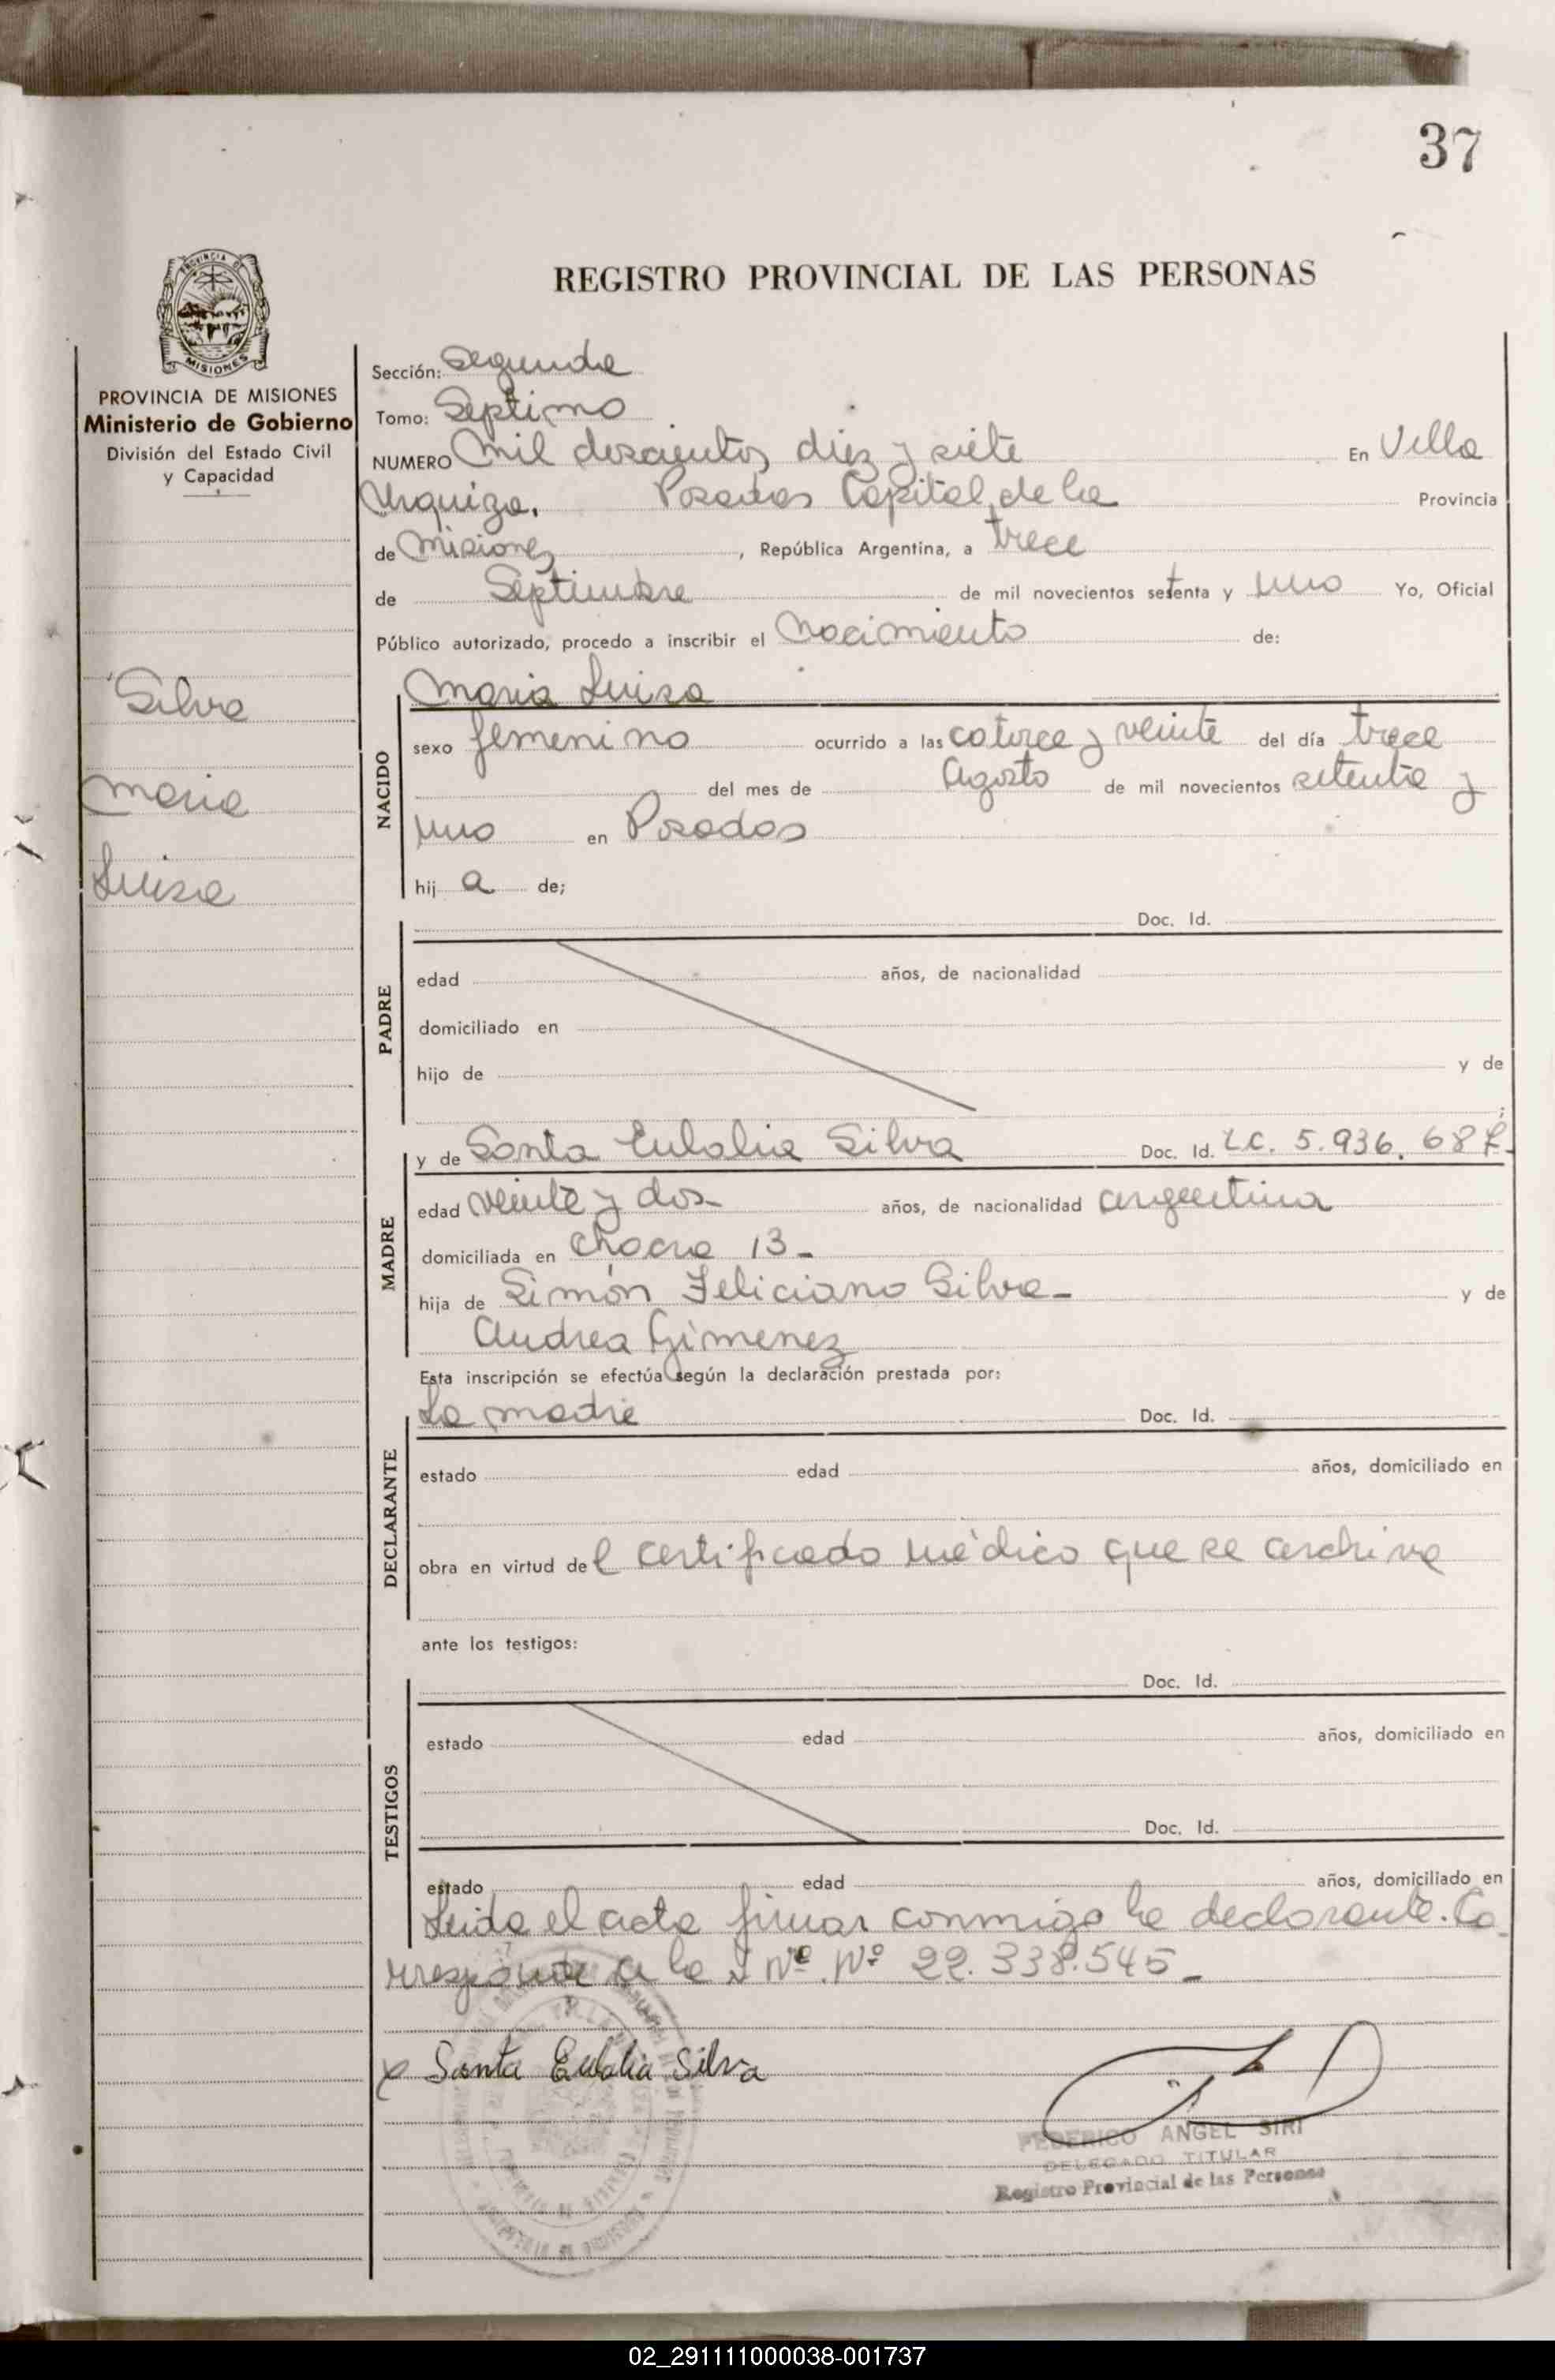 37
PROVINCIA DE
MISIONES
REGISTRO PROVINCIAL DE LAS PERSONAS
PROVINCIA DE MISIONES
Ministerio de Gobierno
División del Estado Civil
y Capacidad
Silva
Maria
Luisa
Sección: Segunda
Tomo: Septimo
NUMERO Mil doscientos diez y siete En Villa
Urquiza. Posadas Capital de la Provincia
de Misiones, República Argentina, a trece
de Septiembre de mil novecientos setenta y uno Yo, Oficial
Público autorizado, procedo a inscribir el Nacimiento de:
NACIDO
Maria Luisa
sexo femenino ocurrido a las catorce y veinte del día trece
del mes de Agosto de mil novecientos setenta y
uno en Posadas
hij a de;
PADRE
Doc. Id.
edad años, de nacionalidad
domiciliado en
hijo de y de
;
MADRE
y de Santa Eulalia Silva Doc. Id. L.C. 5.936.68
edad veinte y dos años, de nacionalidad argentina
domiciliada en Chacra 13-
hija de Simón Feliciano Silva- y de
Andrea Gimenez
Esta inscripción se efectúa según la declaración prestada por:
DECLARANTE
La madre Doc. Id.
estado edad años, domiciliado en
obra en virtud del certificado médico que se archiva
ante los testigos:
TESTIGOS
Doc. Id.
estado edad años, domiciliado en
Doc. Id.
estado edad años, domiciliado en
Leida el acta firmar conmigo la declarante. Co
rresponde a la Nº 22.338.545-
x Santa Eulalia Silva
FEDERICO ANGEL SIRI
DELEGADO TITULAR
Registro Provincial de las Personas
02_291111000038-001737